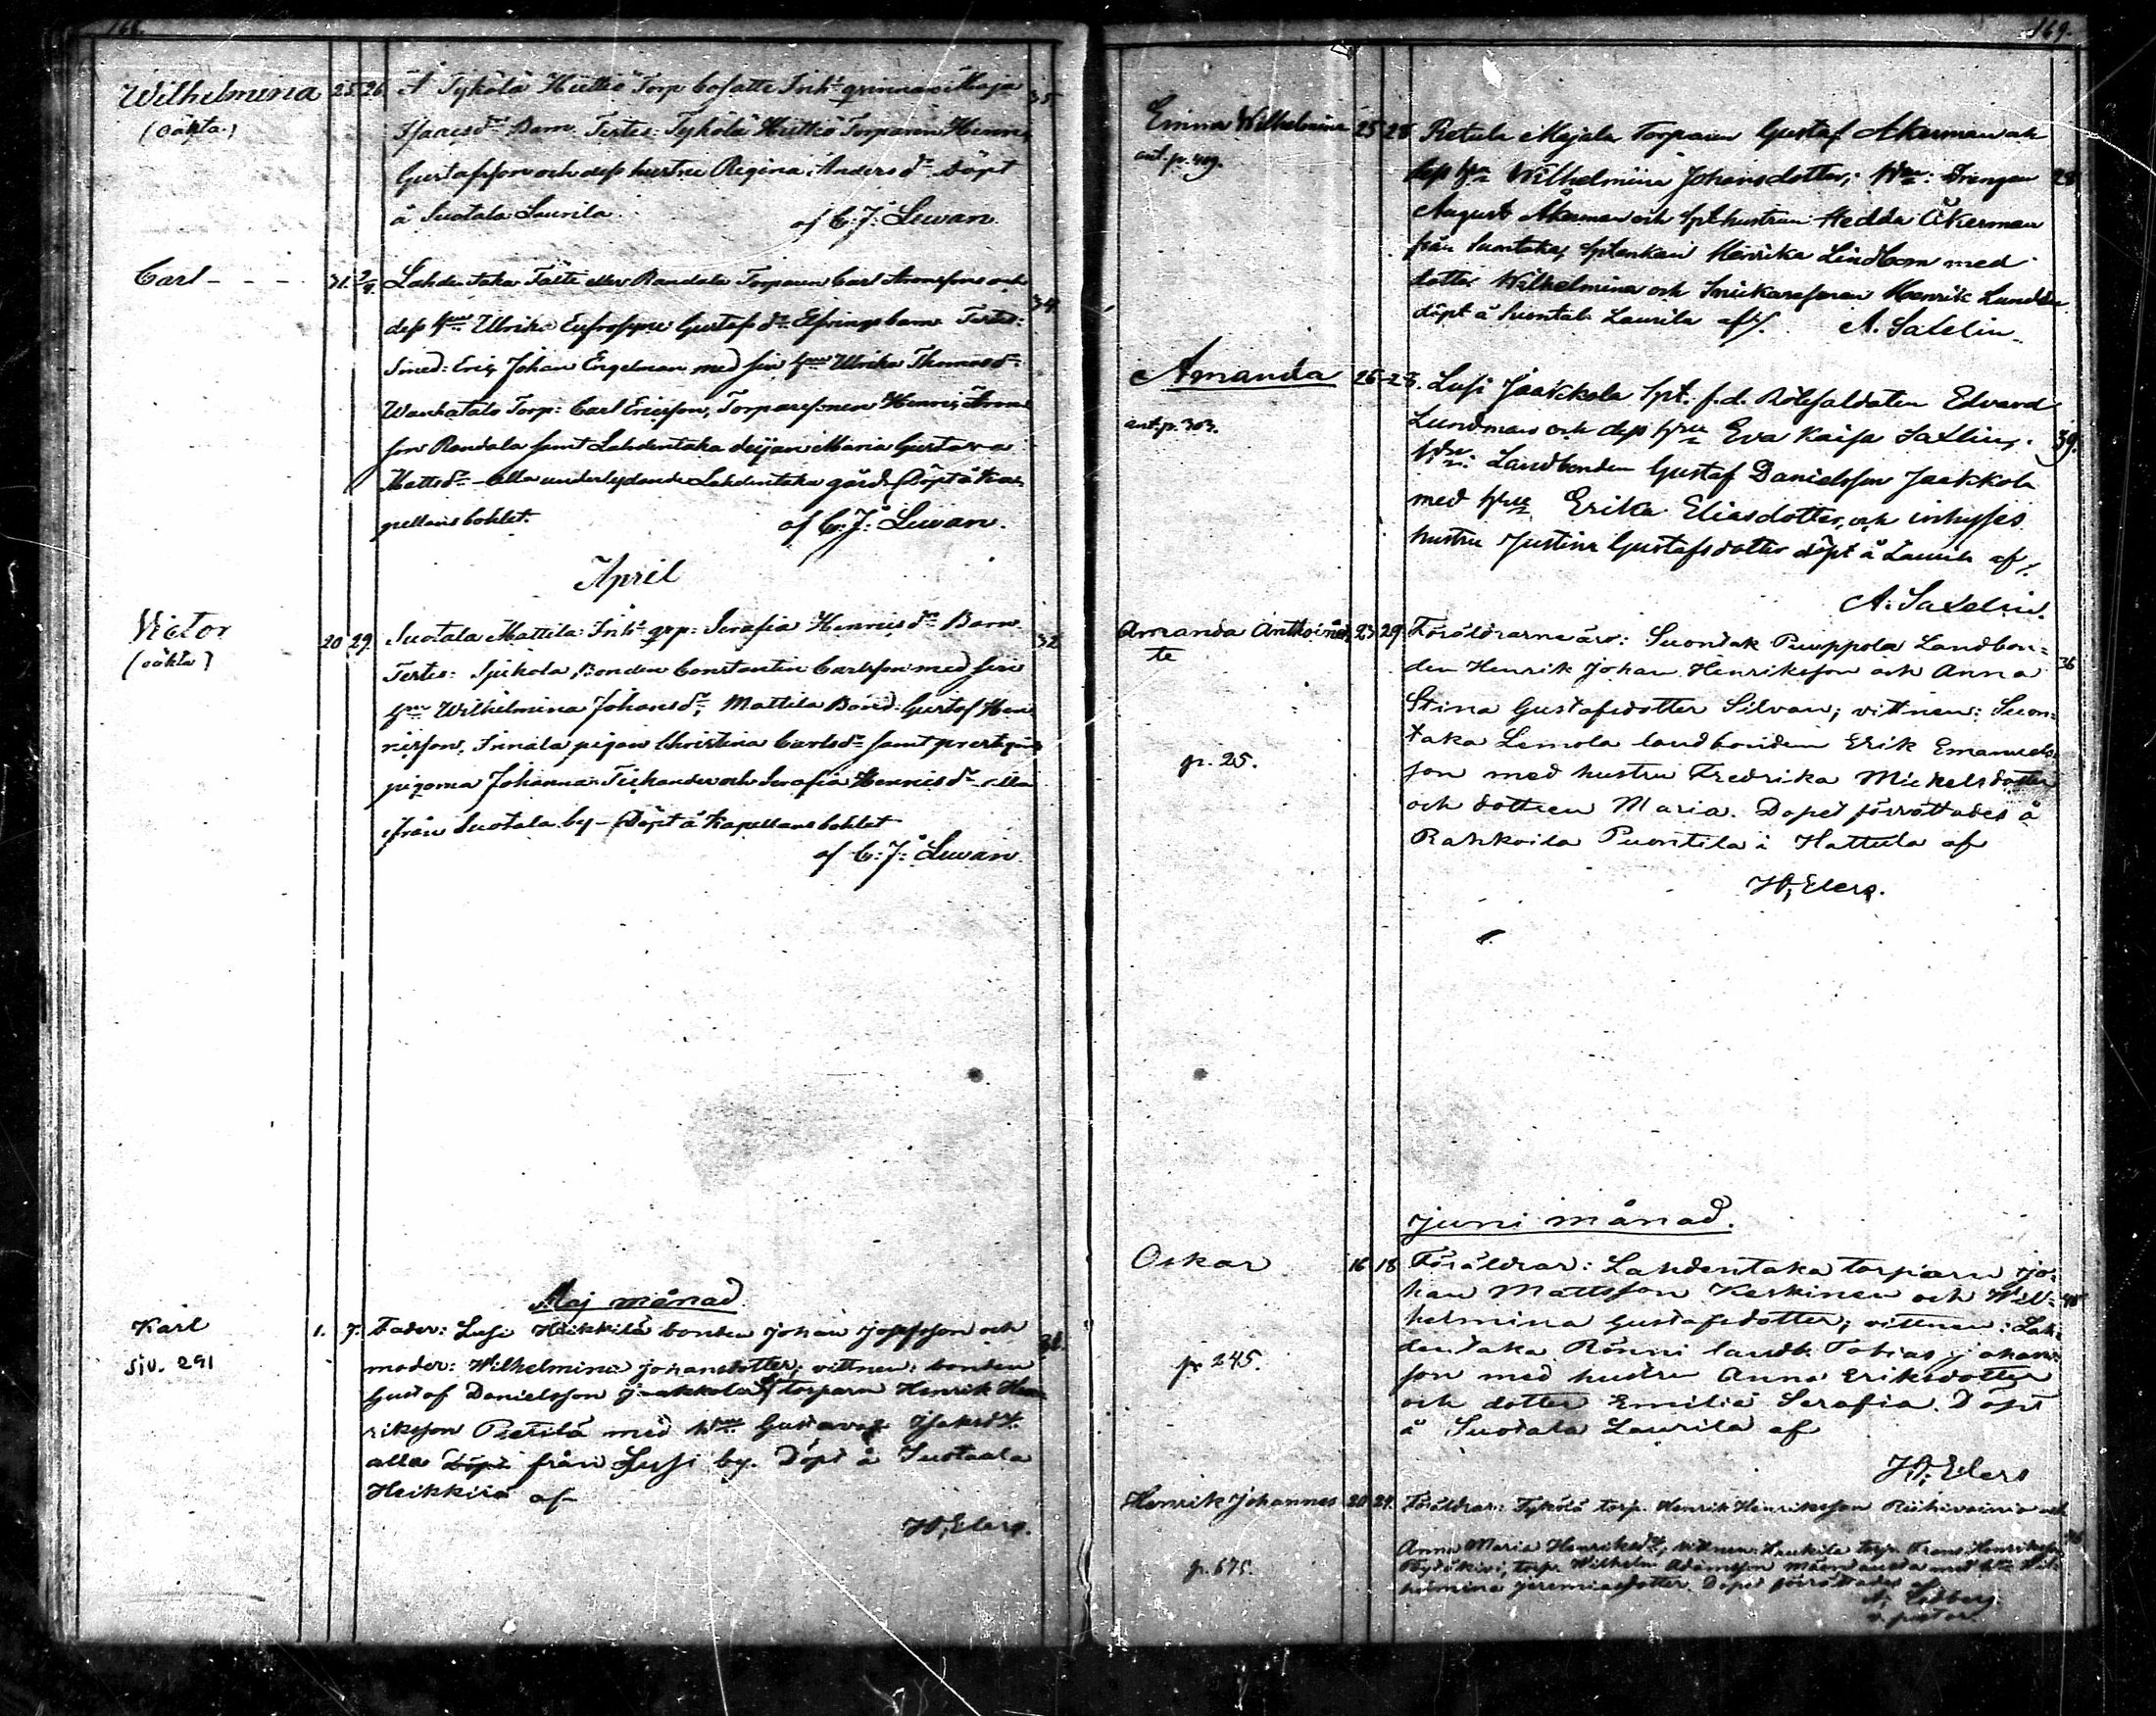 168.
Wilhelmina 25. 26. Å Tykölä Huttio Torp bosatte Inhs qvinnan Maja 35.
(oäkta.) Isacsdr Barn. Testes: Tykölä Huttio Torparen Henric
Gustafsson och dess hustru Regina Andersdr Döpt
å Suotala Laurila. af C. J. Lewan.
Carl - - - 31. 2/4. Lahdentaka Torparen Carl Aronsson och 34.
dess hru Ulrika Eufrosyne Gustafsdr barn Testes:
Smed: Eric Johan Engelman med sin hru Ulrika Thomasdr
Torp: Carl Ericsson, Torparesonen Henric Aron-
son Randala samt Lahdentaka Maria Gustava
Mattsdr - alla underlydande Lahdentaka gård. Döpt å Ka-
pellansbohlet. af C. J. Lewan.
April
Victor 20 29. Suotala Mattila Inhs Serafia Henricsdr Barn. 32
(oäkta) Testes: Bonden Constantin Carlsson med sin
hru Wilhelmina Johansdr, Mattila Bond: Gustaf Hen-
ricsson, pigan Christina Carlsdr samt
pigorna Johanna och Serafia Henricsdr - alla
ifrån Suotala by - Döpt å Kapellansbohlet
af C. J. Lewan.
Maj månad
Karl 1. 7. Fader: Lusi Heikkilä bonden Johan Josefsson och
siv. 291 moder: Wilhelmina Johansdotter; vittnen: bonden
Gustaf Danielsson Jaakkola torparn Henrik Hen-
riksson Pietilä med hru Gustava
alla Döpt från Lusi by. Döpt å Suotaala
Heikkilä af
H. Elers.
169.
Emma Wilhelmina 25 28 Retula Mejala Torparen Gustaf Åkerman och
ant. p. 409. dess hru Wilhelmina Johansdotter; Drengen 28
August Åkerman och hustrun Hedda Åkerman
från Suontaka, enkan Henrika Lindbom med
dotter Wilhelmina och Snickaresonen Henrik
döpt å Suontak. Laurila af A. Saxelin.
Amanda 26 28. Lusi Jaakkola f.d. Rotesoldaten Edvard
ant. p. 303. Lundman och dess hru Eva Kaisa 39.
Landbonden Gustaf Danielsson Jaakkola
med hru Erika Eliasdotter, och inhyses
hustru Justina Gustafsdotter döpt å Laurila af
A. Saxelin.
Amanda Anttoinet- 23 29. Föräldrarne äro: Suontak Puuppola Landbon-
te den Henrik Johan Henriksson och Anna 36
Stina Gustafsdotter Silvan; vittnen: Suon-
p. 25. taka Lemola landbonden Erik Emanuels-
son med hustru Fredrika Mickelsdotter
och dottren Maria. Dopet förrättades å
Rahkoila Puontila i Hattula af
H. Elers.
Juni månad.
Oskar 16 18 Föräldrar: Lahdentaka torparn Jo-
han Mattsson Keskinen och Wil-
helmina Gustafsdotter; vittnen: Lah-
p. 245. dentaka Rönni landb. Tobias Johans-
son med hustru Anna Eriksdotter
och dotter Emilia Serafia. Döpt
å Suotala Laurila af
H. Elers
Henrik Johannes 20 24. Föräldrar: Tykölä torp. Henrik Henriksson Riihivainio och
Anna Maria Henriksdr, vittnen: torp. Frans Henriksson
p. 675. torp. Wilhelm Adamsson med hru Wil-
helmina Jeremiasdotter. Dopet förrättades